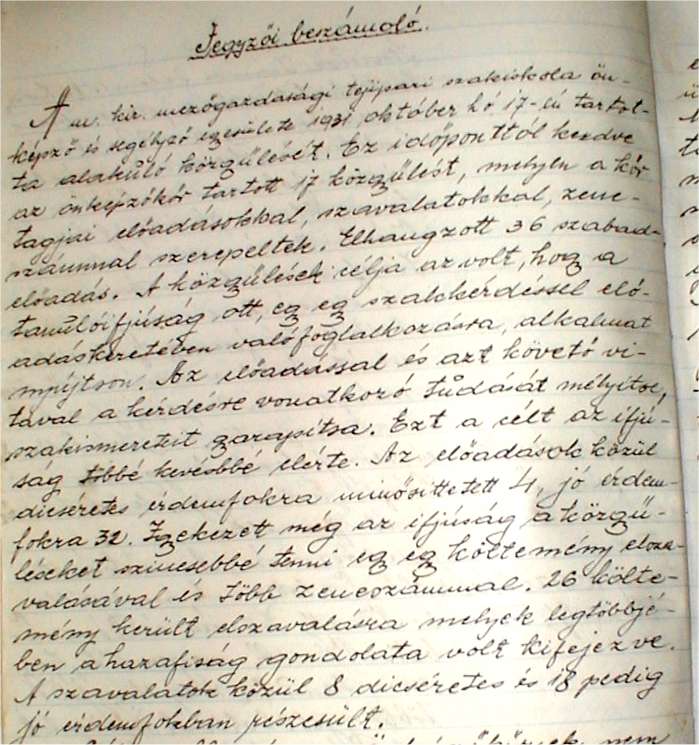 Jegyzői beszámoló.
A m. kir. mezőgazdasági tejipari szakiskola ön-
képző és segélyző egyesülete 1931, október hó 17-én tartot-
ta alakuló közgyűlését. Ez időponttól kezdve
az önképzőkör tartott 17 közgyűlést, melyen a kör
tagjai előadásokkal, szavalatokkal, zene-
számmal szerepeltek. Elhangzott 36 szabad-
előadás. A közgyűlések célja az volt, hogy a
tanulóifjúság ott, egy egy szakkérdéssel elő-
adáskeretében való foglalkozásra, alkalmat
nyújtson. Az előadással és azt követő vi-
tával a kérdésre vonatkozó tudását mélyítse,
szakismereteit gyarapítsa. Ezt a célt az ifjú-
ság többé kevésbbé elérte. Az előadások közül
dicséretes érdemfokra minősíttetett 4, jó érdem-
fokra 32. Igyekezett még az ifjúság a közgyű-
léseket színesebbé tenni egy egy költemény elsza-
valásával és több zeneszámmal. 26 költe-
mény került elszavalásra melyek legtöbbjé-
ben a hazafiság gondolata volt kifejezve.
A szavalatok közül 8 dicséretes és 18 pedig
jó érdemfokban részesült.
nem